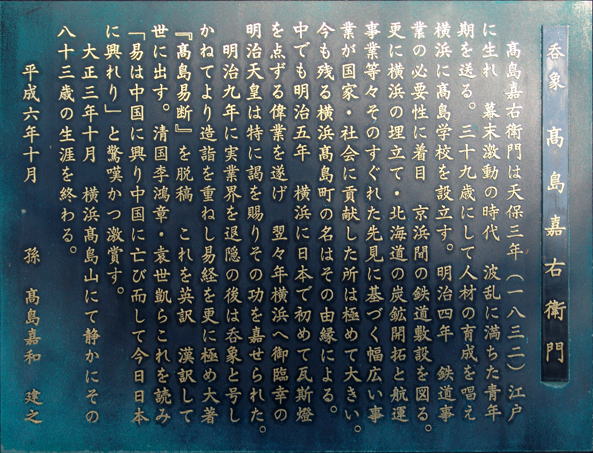 呑象 高島嘉右衛門
高島嘉右衛門は天保三年(一八三二)江戸
に生れ 幕末激動の時代 波乱に満ちた青年
期を送る。三十九歳にして人材の育成を唱え
横浜に高島学校を設立す。明治四年 鉄道事
業の必要性に着目 京浜間の鉄道敷設を図る。
更に横浜の埋立て・北海道の炭鉱開拓と航運
事業等々そのすぐれた先見に基づく幅広い事
業が国家・社会に貢献した所は極めて大きい。
今も残る横浜高島町の名はその由縁による。
中でも明治五年 横浜に日本で初めて瓦斯燈
を点ずる偉業を遂げ 翌々年横浜へ御臨幸の
明治天皇は特に謁を賜りその功を嘉せられた。
明治九年に実業界を退隠の後は呑象と号し
かねてより造詣を重ねし易経を更に極め大著
『高島易断』を脱稿 これを英訳 漢訳して
世に出す。清国李鴻章・袁世凱らこれを読み
「易は中国に興り中国に亡び而して今日日本
に興れり」と驚嘆かつ激賞す。
大正三年十月 横浜高島山にて静かにその
八十三歳の生涯を終わる。
平成六年十月 孫 高島嘉和 建之